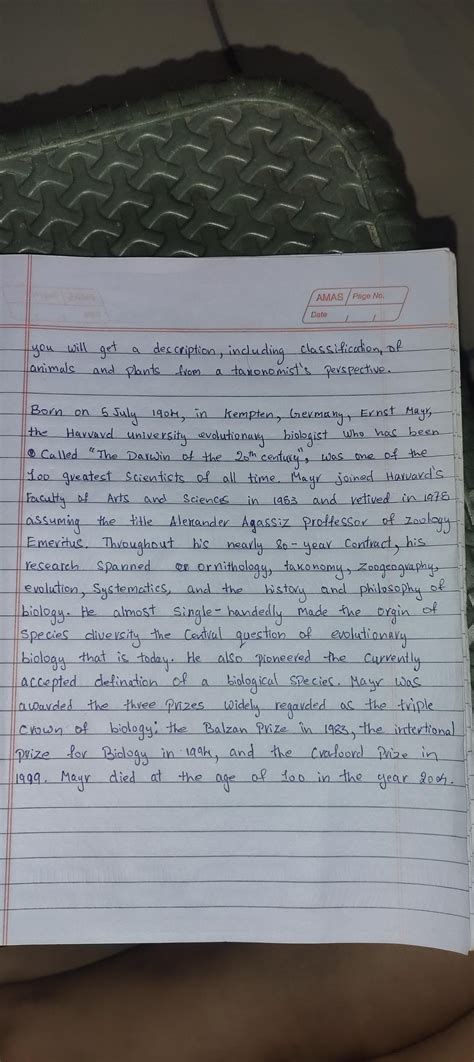 AMAS Page No.
Date / /
you will get a description, including classification, of
animals and plants from a taxonomist's perspective.
Born on 5 July 1904, in Kempten, Germany, Ernst Mayr,
the Harvard university evolutionary biologist who has been
Called "The Darwin of the 20th century", was one of the
100 greatest scientists of all time. Mayr joined Harvard's
Faculty of Arts and Sciences in 1953 and retired in 1975
assuming the title Alexander Agassiz proffessor of zoology
Emeritus. Throughout his nearly 80-year Contract, his
research spanned ornithology, taxonomy, zoogeography,
evolution, Systematics, and the history and philosophy of
biology. He almost Single-handedly made the orgin of
Species diversity the Central question of evolutionary
biology that is today. He also pioneered the currently
accepted defination of a biological species. Mayr was
awarded the three Prizes widely regarded as the triple
Crown of biology: the Balzan Prize in 1983, the intertional
Prize for Biology in 1994, and the Crafoord Prize in
1999. Mayr died at the age of 100 in the year 2004.